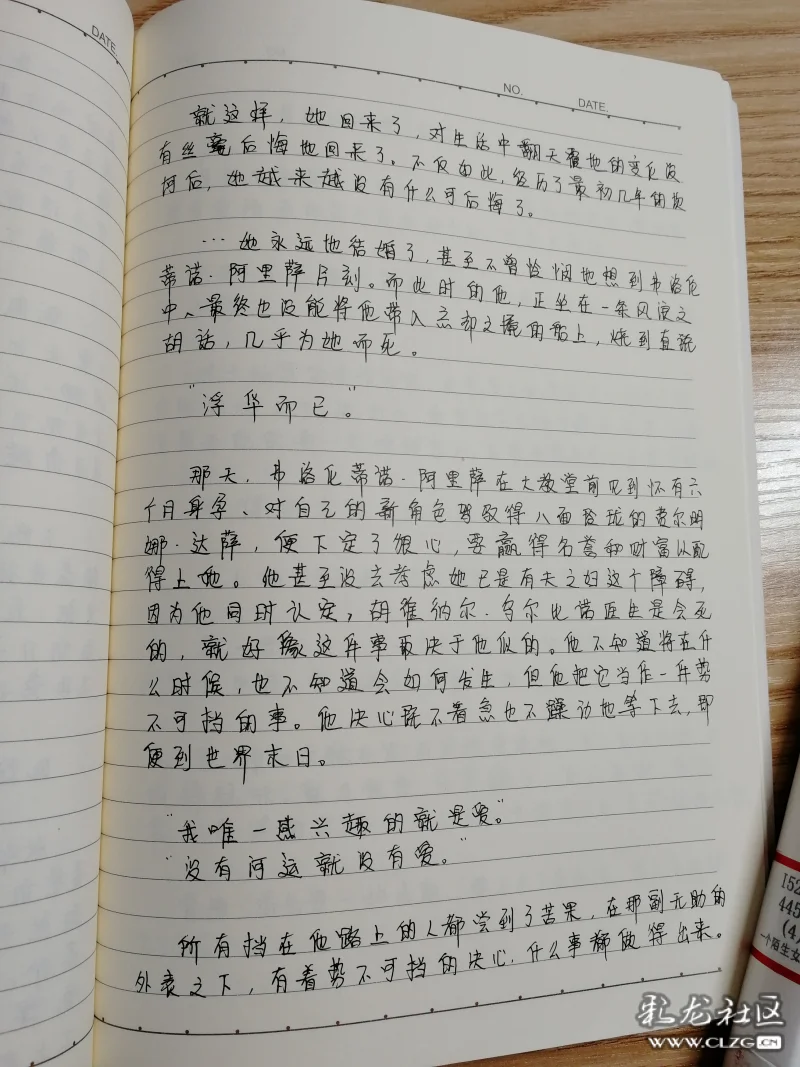 DATE.
NO.
DATE.
就这样，她回来了，对生活中翻天覆地的变化没
有丝毫后悔地回来了。不仅如此，经历了最初几年的
何后，她越来越没有什么可后悔了。
…她永远地结婚了，甚至不曾怜悯地想到弗洛伦
蒂诺·阿里萨片刻。而此时的他，正坐在一条风浪之
中、最终也没能将他带入忘却之境的船上，烧到直说
胡话，几乎为她而死。
"浮华而已。"
那天，弗洛伦蒂诺·阿里萨在大教堂前见到怀有六
个月身孕、对自己的新角色驾驭得八面玲珑的费尔明
娜·达萨，便下定了狠心，要赢得名誉和财富以配
得上她。他甚至没去考虑她已是有夫之妇这个障碍，
因为他同时认定，胡维纳尔·乌尔比诺医生是会死
的，就好像这件事取决于他似的。他不知道将在什
么时候，也不知道会如何发生，但他把它当作一件势
不可挡的事。他决心既不着急也不躁动地等下去，即
便到世界末日。
"我唯一感兴趣的就是爱。"
"没有河运就没有爱。"
所有挡在他路上的人都尝到了苦果，在那副无助的
外表之下，有着势不可挡的决心，什么事都做得出来。
152
445
(4
一个陌生女
彩龙社区
WWW.CLZG.CN